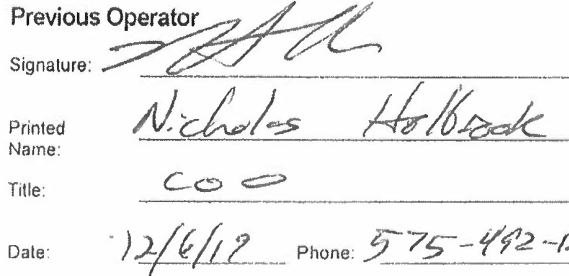 Previous Operator
Signature:
Printed Name: Nicholas Holbrook
Title: COO
Date: 12/6/19 Phone: 575-492-1